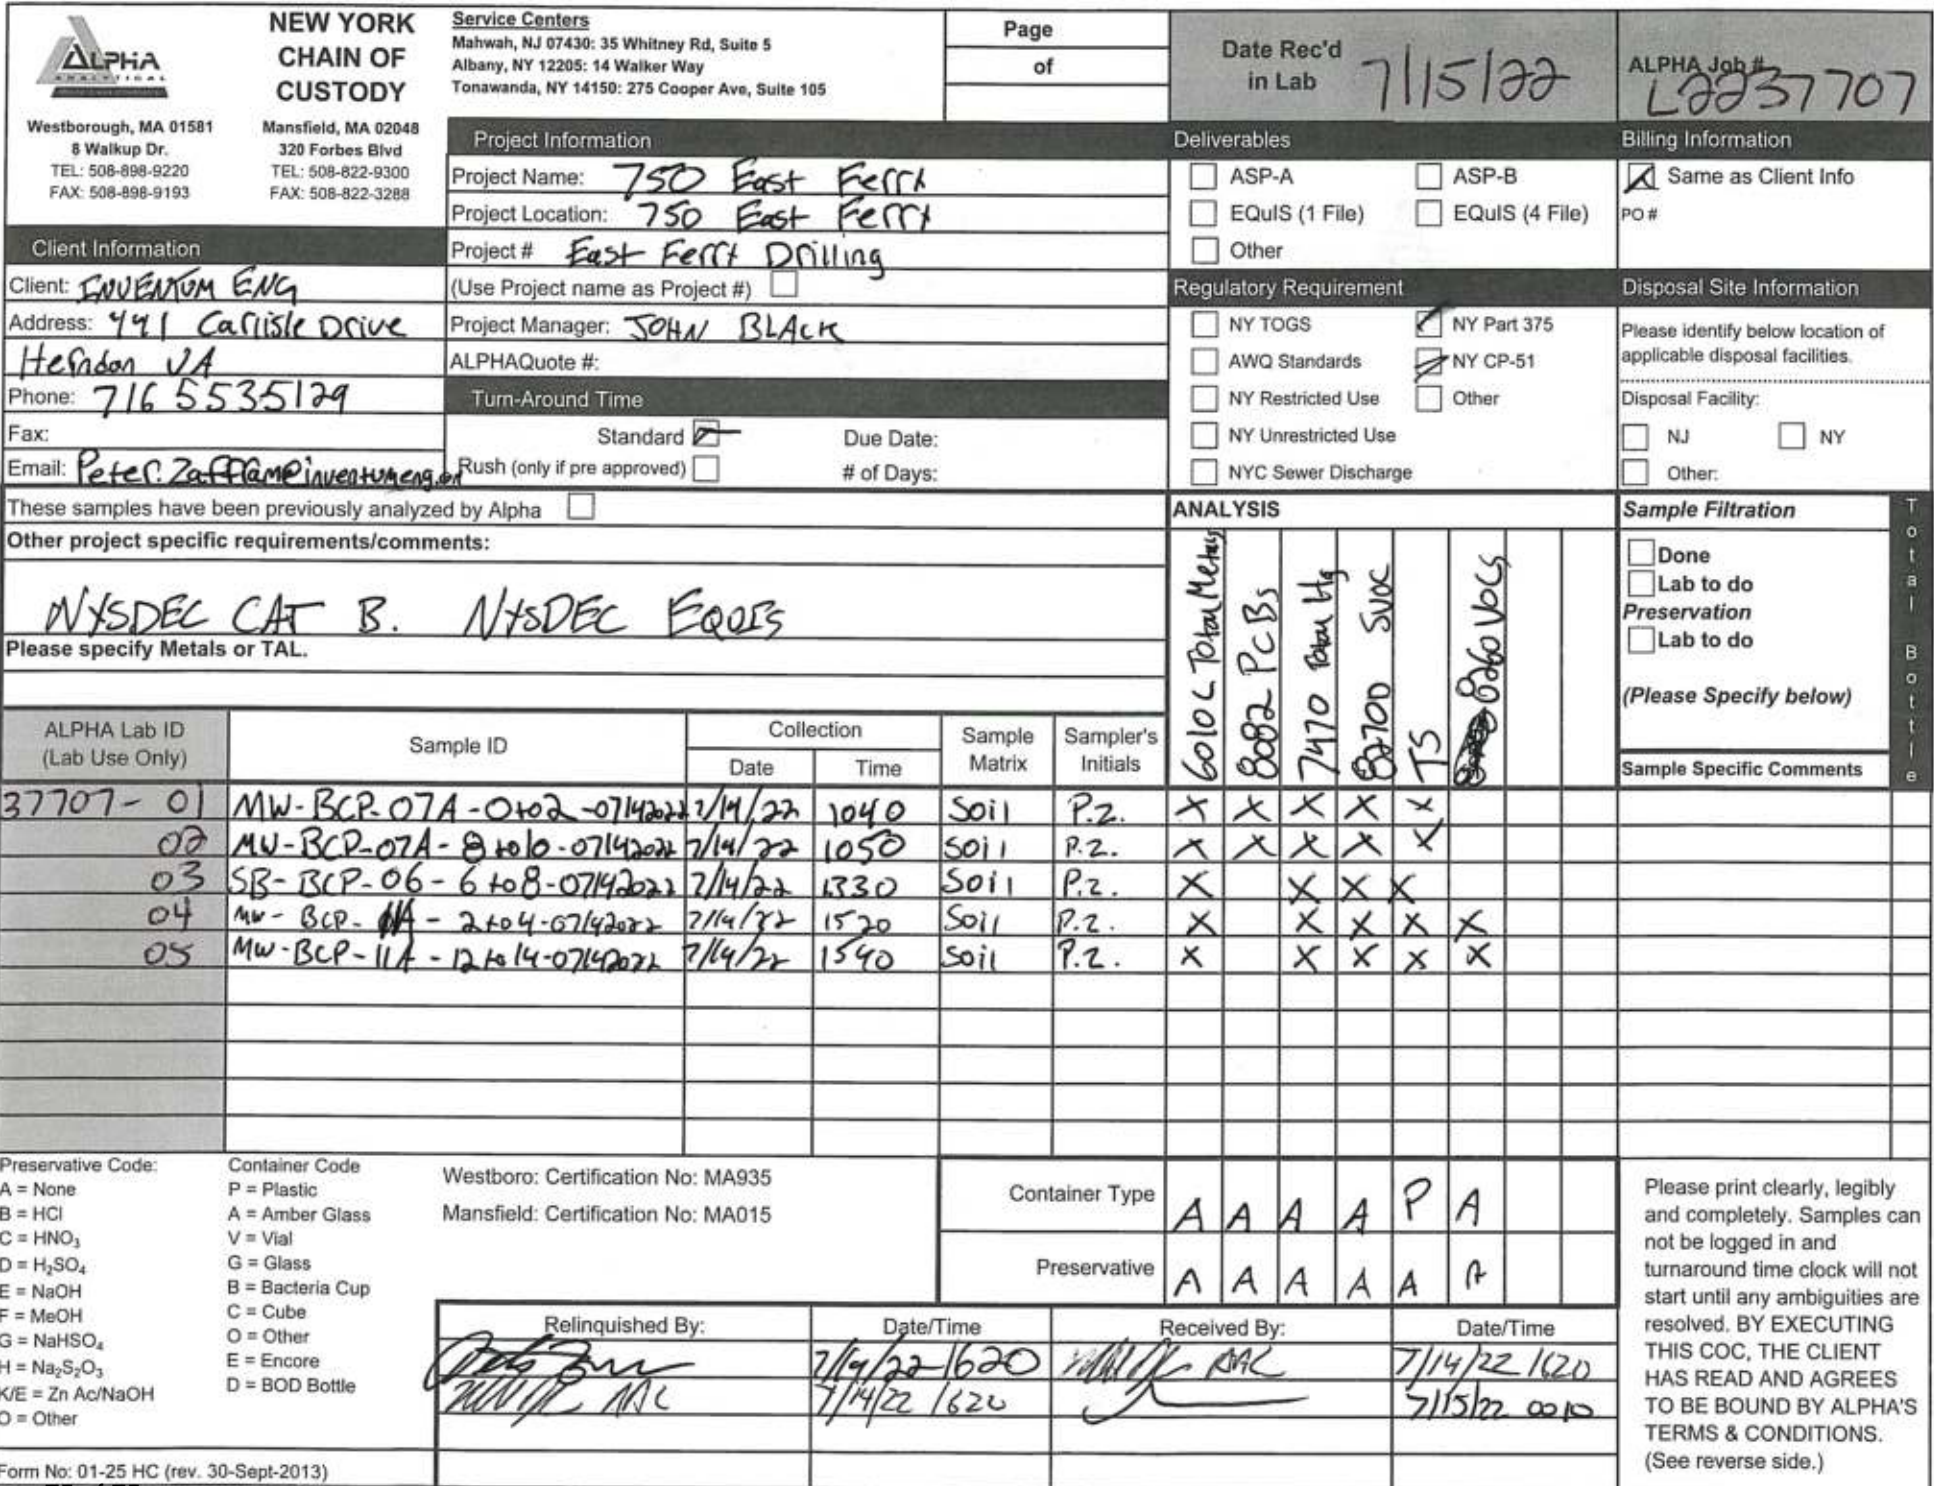 ALPHA
ANALYTICAL
NEW YORK
CHAIN OF
CUSTODY
Westborough, MA 01581
8 Walkup Dr.
TEL: 508-898-9220
FAX: 508-898-9193
Mansfield, MA 02048
320 Forbes Blvd
TEL: 508-822-9300
FAX: 508-822-3288
Service Centers
Mahwah, NJ 07430: 35 Whitney Rd, Suite 5
Albany, NY 12205: 14 Walker Way
Tonawanda, NY 14150: 275 Cooper Ave, Suite 105
Page
of
Date Rec'd
in Lab 7/15/22
ALPHA Job #
L2237707
Client Information
Client: INVENTUM ENG
Address: 441 Carlisle Drive
Herndon VA
Phone: 716 5535129
Fax:
Email:
Project Information
Project Name: 750 East Ferry
Project Location: 750 East Ferry
Project # East Ferry Drilling
(Use Project name as Project #)
Project Manager: JOHN BLACK
ALPHAQuote #:
Turn-Around Time
Standard Due Date:
Rush (only if pre approved) # of Days:
Deliverables
ASP-A ASP-B
EQuIS (1 File) EQuIS (4 File)
Other
Regulatory Requirement
NY TOGS NY Part 375
AWQ Standards NY CP-51
NY Restricted Use Other
NY Unrestricted Use
NYC Sewer Discharge
Billing Information
Same as Client Info
PO #
Disposal Site Information
Please identify below location of
applicable disposal facilities.
Disposal Facility:
NJ NY
Other:
These samples have been previously analyzed by Alpha
Other project specific requirements/comments:
NYSDEC CAT B. NYSDEC EQUIS
Please specify Metals or TAL.
ANALYSIS
6010C Total Metals
8082 PCBs
7470 Total Hg
8270D SVOC
TS
8260 VOCs
Sample Filtration
Done
Lab to do
Preservation
Lab to do
(Please Specify below)
Sample Specific Comments
Total Bottle
ALPHA Lab ID
(Lab Use Only)
Sample ID
Collection
Date Time
Sample
Matrix
Sampler's
Initials
37707-01 MW-BCP-07A-0to2-07142022 7/14/22 1040 Soil P.Z. X X X X X
02 MW-BCP-07A-8to10-07142022 7/14/22 1050 Soil P.Z. X X X X X
03 SB-BCP-06-6to8-07142022 7/14/22 1330 Soil P.Z. X X X X
04 MW-BCP-11A-2to4-07142022 7/14/22 1520 Soil P.Z. X X X X X
05 MW-BCP-11A-12to14-07142022 7/14/22 1540 Soil P.Z. X X X X X
Preservative Code:
A = None
B = HCl
C = HNO₃
D = H₂SO₄
E = NaOH
F = MeOH
G = NaHSO₄
H = Na₂S₂O₃
K/E = Zn Ac/NaOH
O = Other
Container Code
P = Plastic
A = Amber Glass
V = Vial
G = Glass
B = Bacteria Cup
C = Cube
O = Other
E = Encore
D = BOD Bottle
Westboro: Certification No: MA935
Mansfield: Certification No: MA015
Container Type A A A A P A
Preservative A A A A A A
Relinquished By: Date/Time Received By: Date/Time
7/14/22 1620 AAL 7/14/22 1620
AAL 7/14/22 1620 7/15/22 0010
Please print clearly, legibly
and completely. Samples can
not be logged in and
turnaround time clock will not
start until any ambiguities are
resolved. BY EXECUTING
THIS COC, THE CLIENT
HAS READ AND AGREES
TO BE BOUND BY ALPHA'S
TERMS & CONDITIONS.
(See reverse side.)
Form No: 01-25 HC (rev. 30-Sept-2013)